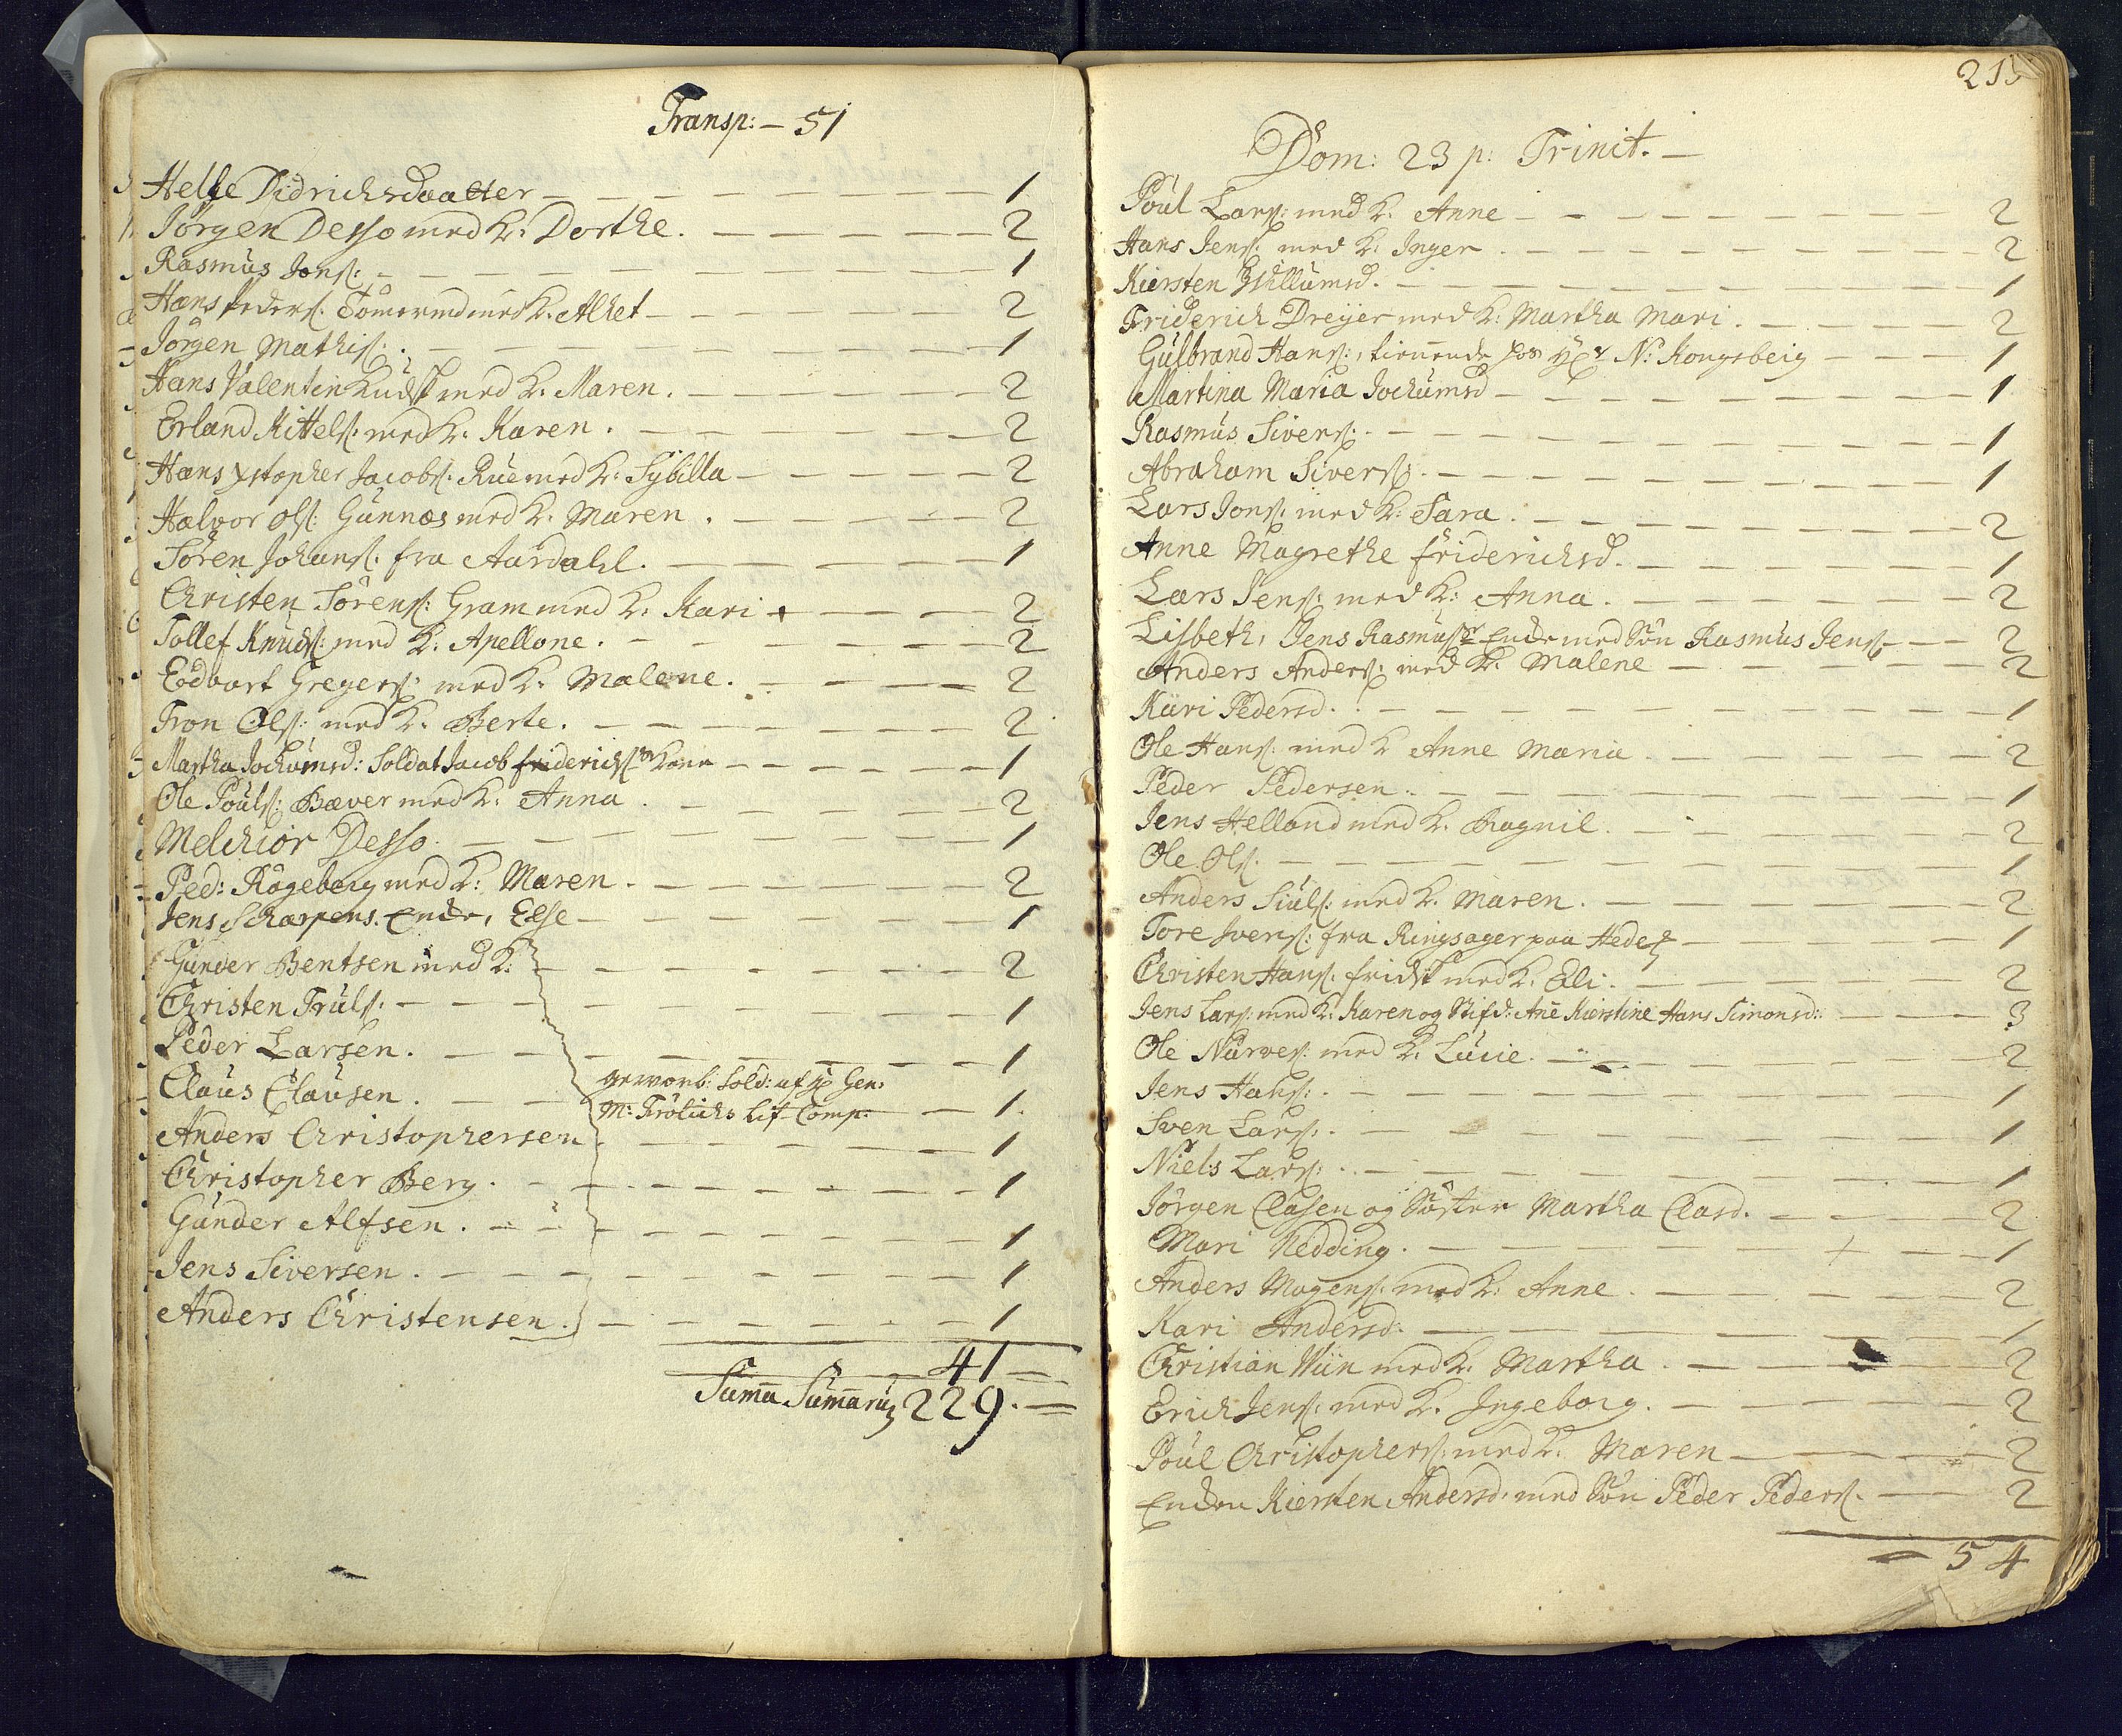 Transp: - 51
Helle Didrichsdaatter - 1
Jørgen Desso med K: Dorthe. - 2
Rasmus Jons: - 1
Hans Peders: Tømermd med K: Alhet - 2
Jørgen Mathis: - 1
Hans Valentin Kudsk med K: Maren. - 2
Erland Kittels: med K: Karen. - 2
Hans Xstopher Jacobs: Rue med K: Sybilla - 2
Halvor Ols: Gunnæs med K: Maren. - 2
Søren Johans: fra Aardahl. - 1
Christen Sørens: Gram med K: Kari - 2
Tollef Knuds: med K: Apellone. - 2
Edvart Gregers: med K: Malene. - 2
Tron Ols: med K: Berte. - 2
Martha Jochumsd: Soldat Jacob friderichs: Kone - 1
Ole Pouls: Bæver med K: Anna. - 2
Melchior Desso. - 1
Ped: Rogeberg med K: Maren. - 2
Jens Scharpens Encke, Else - 1
Gunder Bentsen med K: - 2
Christen Truls: - 1
Peder Larsen. - 1
Claus Clausen. - geworb: Sold: af H: Gen:
M: Frølichs Lif Comp: - 1.
Anders Christophersen - 1
Christopher Berg. - 1
Gunder Alfsen. - 1
Jens Siversen. - 1
Anders Christensen. - 1
41
Suma Sumarum 229.
215
Dom: 23 p: Trinit.
Poul Lars: med K: Anne - 2
Hans Jens: med K: Inger. - 2
Kiersten Willumsd. - 1
Friderich Dreyer med K: Martha Mari. - 2
Gulbrand Hans:, tienende hos Hr N: Kongsberg - 1
Martina Maria Jochumsd - 1
Rasmus Sivers: - 1
Abraham Sivers: - 1
Lars Jons: med K: Sara. - 2
Anne Magrethe friderichsd. - 1
Lars Jens: med K: Anna. - 2
Lisbeth, Jens Rasmuss: Encke med Søn Rasmus Jens: - 2
Anders Anders: med K: Malene - 2
Kari Pedersd. - 1
Ole Hans: med K Anne Maria. - 2
Peder Pedersen. - 1
Jens Helland med K: Ragnil. - 2
Ole Ols: - 1
Anders Siuls: med K: Maren. - 2
Tore Ivers: fra Ringsager paa Hedem: - 1
Christen Hans: fridsk med K: Eli. - 2
Jens Lars: med K: Karen og Stifd: Ane Kierstine Hans Simonsd: - 3
Ole Narves: med K: Lucie. - 2
Jens Hans: - 1
Sven Lars: - 1
Niels Lars: - 1
Jørgen Clasen og Søster Martha Clasd. - 2
Mari Nedding. - 1
Anders Mogens: med K: Anne. - 2
Kari Andersd. - 1
Christian Wiin med K: Martha. - 2
Erich Jens: med K: Ingeborg. - 2
Poul Christophers: med K: Maren - 2
Encken Kiersten Andersd: med Søn Peder Peders: - 2
54